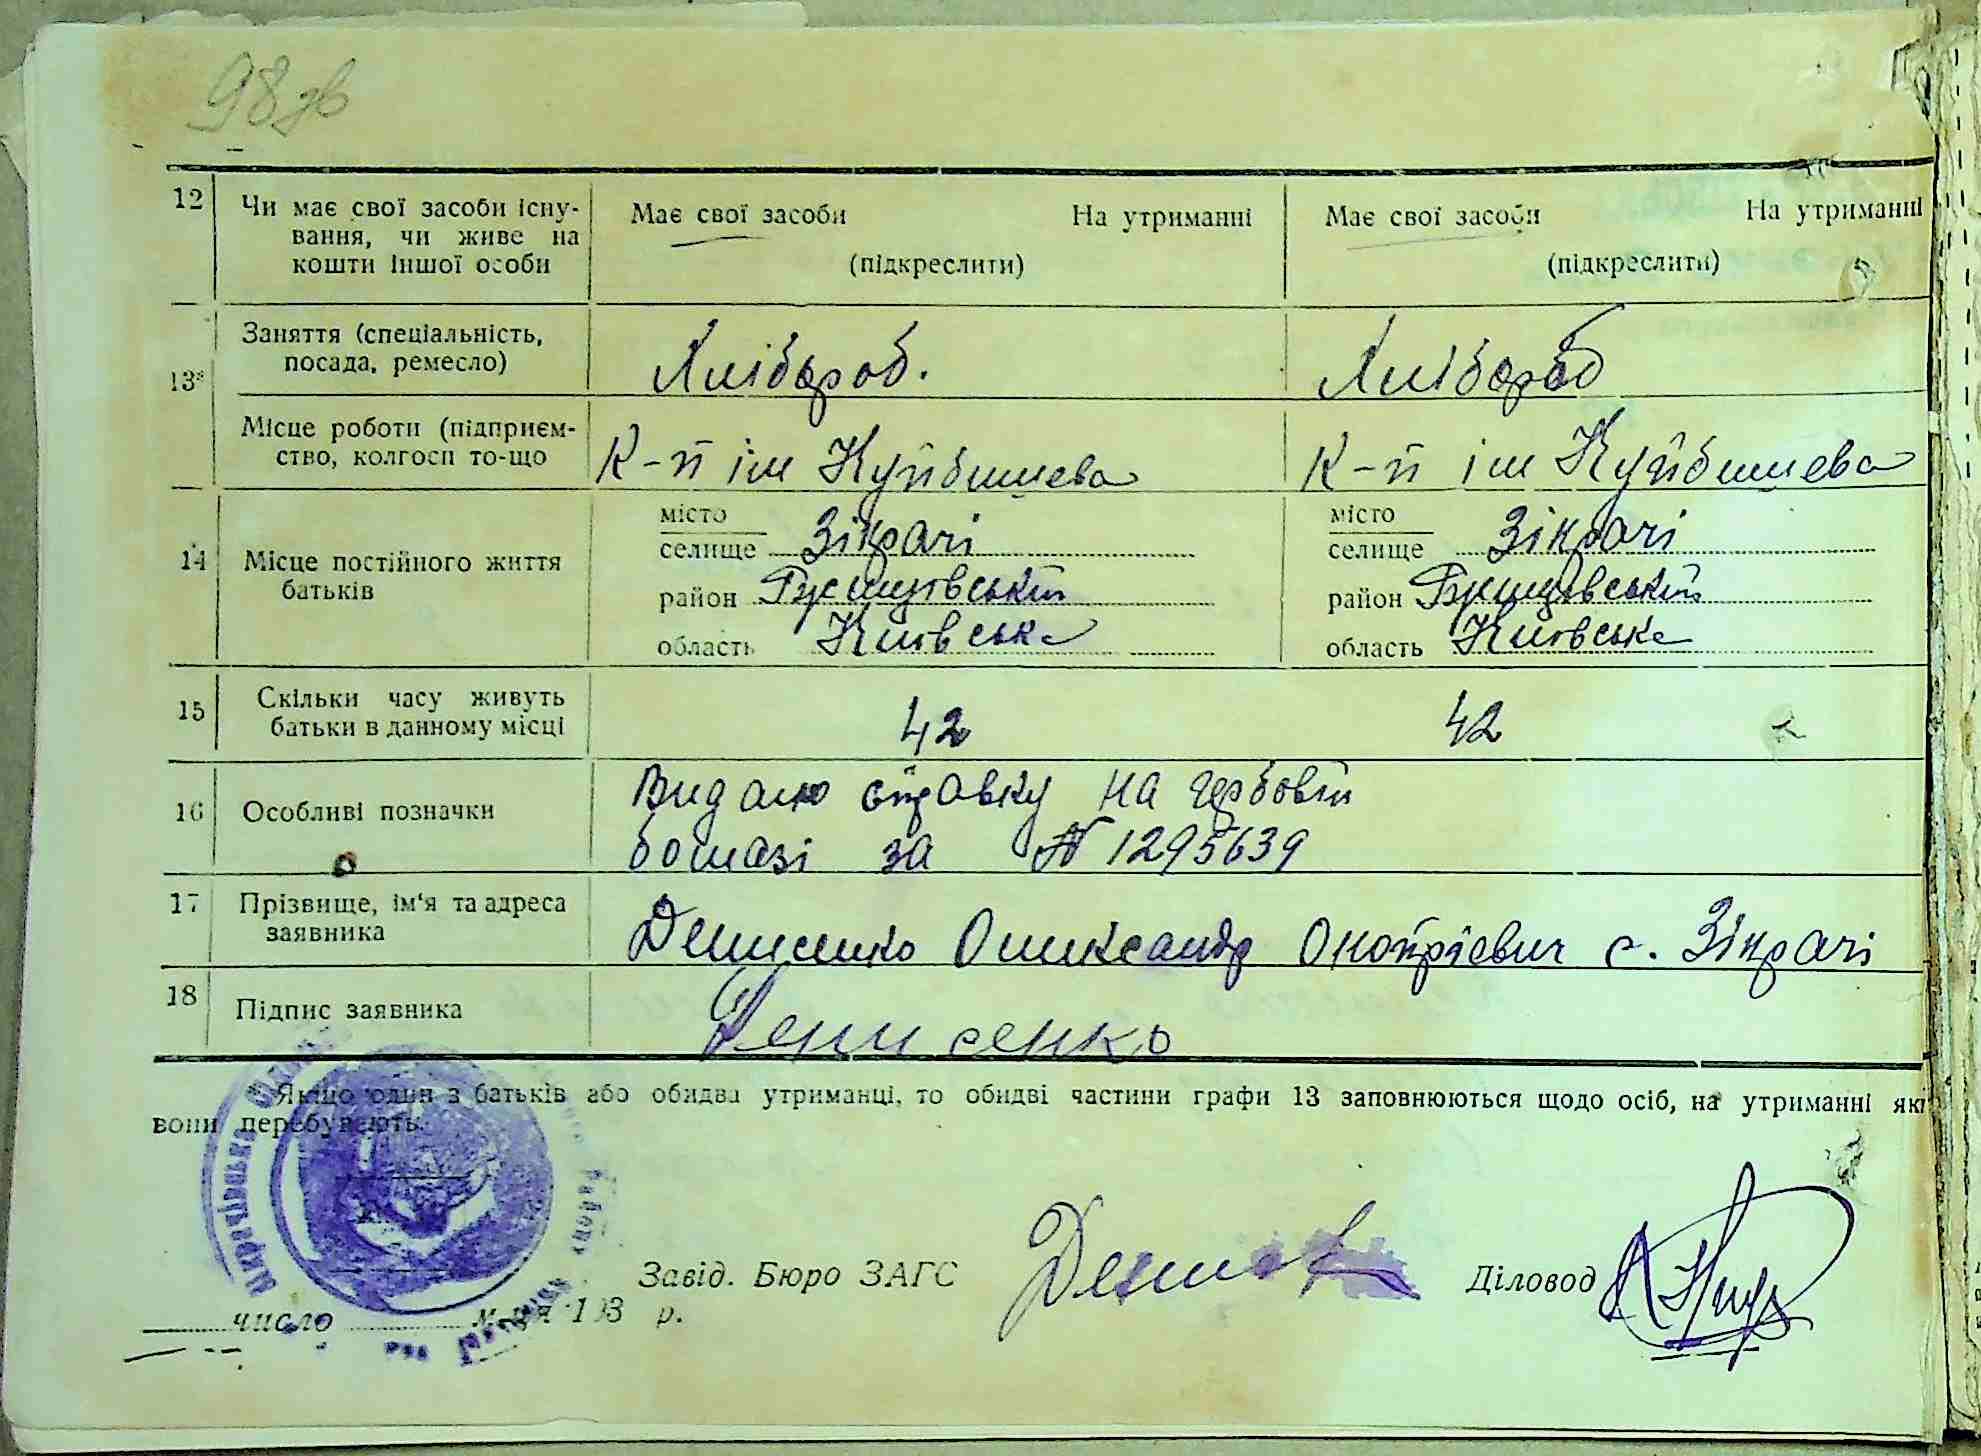 98 зв
12 Чи має свої засоби існу- Має свої засоби На утриманні Має свої засоби На утриманні
вання, чи живе на
кошти іншої особи (підкреслити) (підкреслити)
Заняття (спеціальність,
посада, ремесло) Хлібороб. Хлібороб
13
Місце роботи (підприєм-
ство, колгосп то-що К-п ім Куйбишева К-п ім Куйбишева
місто місто
селище Зікрачі селище Зікрачі
14 Місце постійного життя
батьків район район
область Київська область Київське
15 Скільки часу живуть
батьки в данному місці 42 42
16 Особливі позначки Видано справку на гербовій
бомазі за № 1295639
17 Прізвище, ім'я та адреса
заявника Денисенко Олександр Онопрієвич с. Зікрачі
18 Підпис заявника Денисенко
Якщо один з батьків або обидва утриманці, то обидві частини графи 13 заповнюються щодо осіб, на утриманні які
вони перебувають.
Завід. Бюро ЗАГС Діловод
число м-ця 193 р.